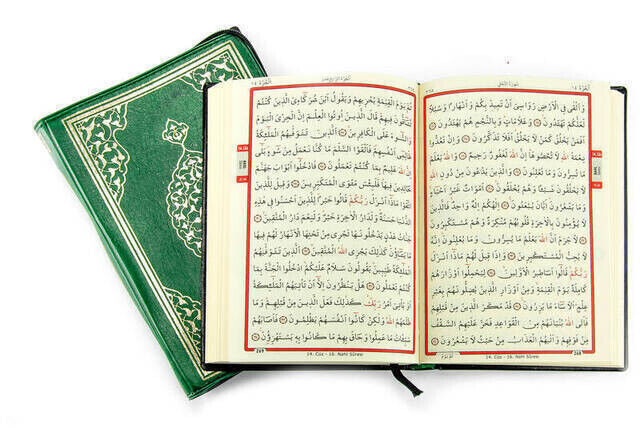 سورة النحل
وَاَلْقٰى فِي الْاَرْضِ رَوَاسِيَ اَنْ تَمِيدَ بِكُمْ وَاَنْهَارًا وَسُبُلًا
لَعَلَّكُمْ تَهْتَدُونَ وَعَلَامَاتٍ وَبِالنَّجْمِ هُمْ يَهْتَدُونَ
اَفَمَنْ يَخْلُقُ كَمَنْ لَا يَخْلُقُ اَفَلَا تَذَكَّرُونَ وَاِنْ تَعُدُّوا
نِعْمَةَ اللهِ لَا تُحْصُوهَا اِنَّ اللهَ لَغَفُورٌ رَحِيمٌ وَاللهُ يَعْلَمُ
مَا تُسِرُّونَ وَمَا تُعْلِنُونَ وَالَّذِينَ يَدْعُونَ مِنْ دُونِ اللهِ
لَا يَخْلُقُونَ شَيْئًا وَهُمْ يُخْلَقُونَ اَمْوَاتٌ غَيْرُ اَحْيَاءٍ
وَمَا يَشْعُرُونَ اَيَّانَ يُبْعَثُونَ اِلٰهُكُمْ اِلٰهٌ وَاحِدٌ فَالَّذِينَ
لَا يُؤْمِنُونَ بِالْاٰخِرَةِ قُلُوبُهُمْ مُنْكِرَةٌ وَهُمْ مُسْتَكْبِرُونَ
لَا جَرَمَ اَنَّ اللهَ يَعْلَمُ مَا يُسِرُّونَ وَمَا يُعْلِنُونَ اِنَّهُ
لَا يُحِبُّ الْمُسْتَكْبِرِينَ وَاِذَا قِيلَ لَهُمْ مَاذَا اَنْزَلَ
رَبُّكُمْ قَالُوا اَسَاطِيرُ الْاَوَّلِينَ لِيَحْمِلُوا اَوْزَارَهُمْ
كَامِلَةً يَوْمَ الْقِيٰمَةِ وَمِنْ اَوْزَارِ الَّذِينَ يُضِلُّونَهُمْ بِغَيْرِ
عِلْمٍ اَلَا سَاءَ مَا يَزِرُونَ قَدْ مَكَرَ الَّذِينَ مِنْ قَبْلِهِمْ
فَاَتَى اللهُ بُنْيَانَهُمْ مِنَ الْقَوَاعِدِ فَخَرَّ عَلَيْهِمُ السَّقْفُ
مِنْ فَوْقِهِمْ وَاَتٰيهُمُ الْعَذَابُ مِنْ حَيْثُ لَا يَشْعُرُونَ
14. Cüz - 16. Nahl Sûresi 268
ثُمَّ يَوْمَ الْقِيٰمَةِ يُخْزِيهِمْ وَيَقُولُ اَيْنَ شُرَكَاءِيَ الَّذِينَ كُنْتُمْ
تُشَاقُّونَ فِيهِمْ قَالَ الَّذِينَ اُوتُوا الْعِلْمَ اِنَّ الْخِزْيَ الْيَوْمَ
وَالسُّوءَ عَلَى الْكَافِرِينَ اَلَّذِينَ تَتَوَفّٰيهُمُ الْمَلٰئِكَةُ
ظَالِمِي اَنْفُسِهِمْ فَاَلْقَوُا السَّلَمَ مَا كُنَّا نَعْمَلُ مِنْ سُوءٍ بَلٰى
اِنَّ اللهَ عَلِيمٌ بِمَا كُنْتُمْ تَعْمَلُونَ فَادْخُلُوا اَبْوَابَ جَهَنَّمَ
خَالِدِينَ فِيهَا فَلَبِئْسَ مَثْوَى الْمُتَكَبِّرِينَ وَقِيلَ لِلَّذِينَ
اتَّقَوْا مَاذَا اَنْزَلَ رَبُّكُمْ قَالُوا خَيْرًا لِلَّذِينَ اَحْسَنُوا
فِي هٰذِهِ الدُّنْيَا حَسَنَةٌ وَلَدَارُ الْاٰخِرَةِ خَيْرٌ وَلَنِعْمَ دَارُ الْمُتَّقِينَ
جَنَّاتُ عَدْنٍ يَدْخُلُونَهَا تَجْرِي مِنْ تَحْتِهَا الْاَنْهَارُ لَهُمْ فِيهَا
مَا يَشَاؤُنَ كَذٰلِكَ يَجْزِي اللهُ الْمُتَّقِينَ اَلَّذِينَ تَتَوَفّٰيهُمُ
الْمَلٰئِكَةُ طَيِّبِينَ يَقُولُونَ سَلَامٌ عَلَيْكُمُ ادْخُلُوا الْجَنَّةَ بِمَا
كُنْتُمْ تَعْمَلُونَ هَلْ يَنْظُرُونَ اِلَّا اَنْ تَأْتِيَهُمُ الْمَلٰئِكَةُ
اَوْ يَأْتِيَ اَمْرُ رَبِّكَ كَذٰلِكَ فَعَلَ الَّذِينَ مِنْ قَبْلِهِمْ وَمَا
ظَلَمَهُمُ اللهُ وَلٰكِنْ كَانُوا اَنْفُسَهُمْ يَظْلِمُونَ فَاَصَابَهُمْ
سَيِّئَاتُ مَا عَمِلُوا وَحَاقَ بِهِمْ مَا كَانُوا بِهِ يَسْتَهْزِؤُنَ
269 14. Cüz - 16. Nahl Sûresi